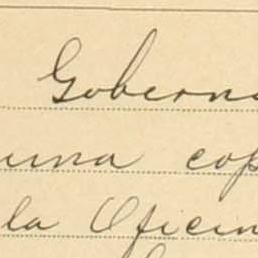 Goberna
una cop
la Oficin